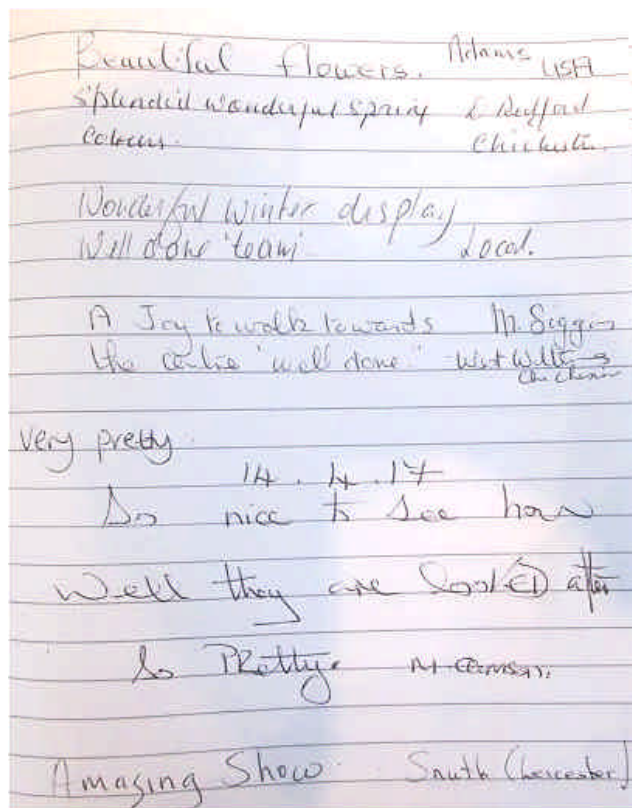 Beautiful flowers. Adams USA
Splendid wonderful spring
colours. Chichester.
Wonderful Winter display
Well done 'team' Local.
A Joy to walk towards M. Siggins
the centre 'well done' West Wittering
Chichester
very pretty.
14.4.17
So nice to see how
Well they are looked after
So PRetty.
Amazing Show. Smith (Leicester)